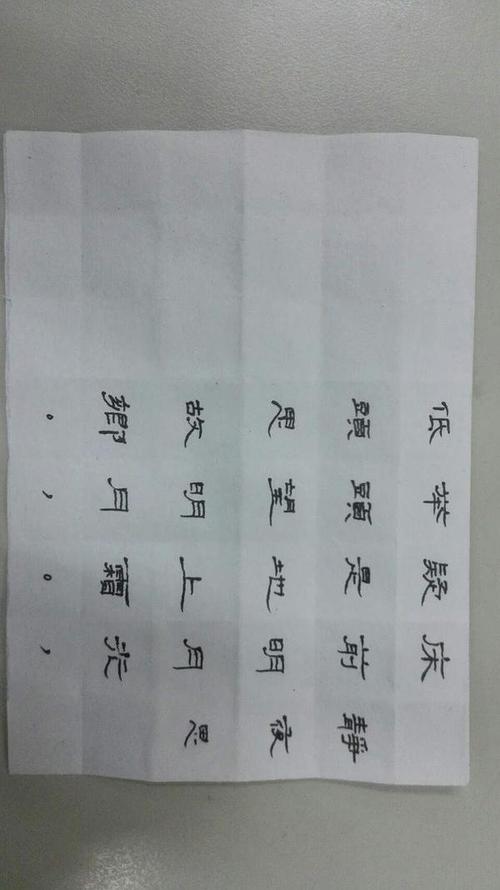 靜夜思
床前明月光，
疑是地上霜。
举頭望明月，
低頭思故鄉。